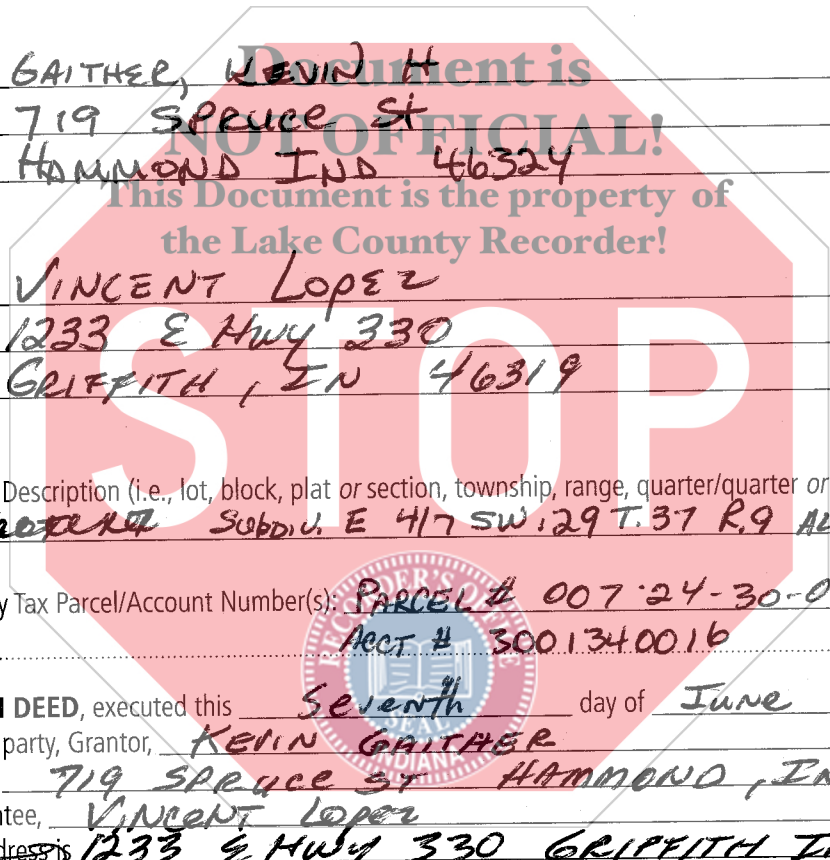 GAITHER, KEVIN H
Document is
719 SPRUCE St
NOT OFFICIAL!
HAMMOND IND 46324
This Document is the property of
the Lake County Recorder!
VINCENT LOPEZ
1233 E HWY 330
GRIFFITH, IN 46319
STOP
Description (i.e., lot, block, plat or section, township, range, quarter/quarter or
SUBDIV. E 4/7 SW.29 T.37 R.9 AL
y Tax Parcel/Account Number(s): PARCEL # 007-24-30-0
ACCT # 3001340016
RECORDER'S OFFICE
SEAL
INDIANA
DEED, executed this Seventh day of June
party, Grantor, KEVIN GAITHER
719 SPRUCE ST HAMMOND, IN
ntee, VINCENT LOPEZ
dress is 1233 E HWY 330 GRIFFITH I